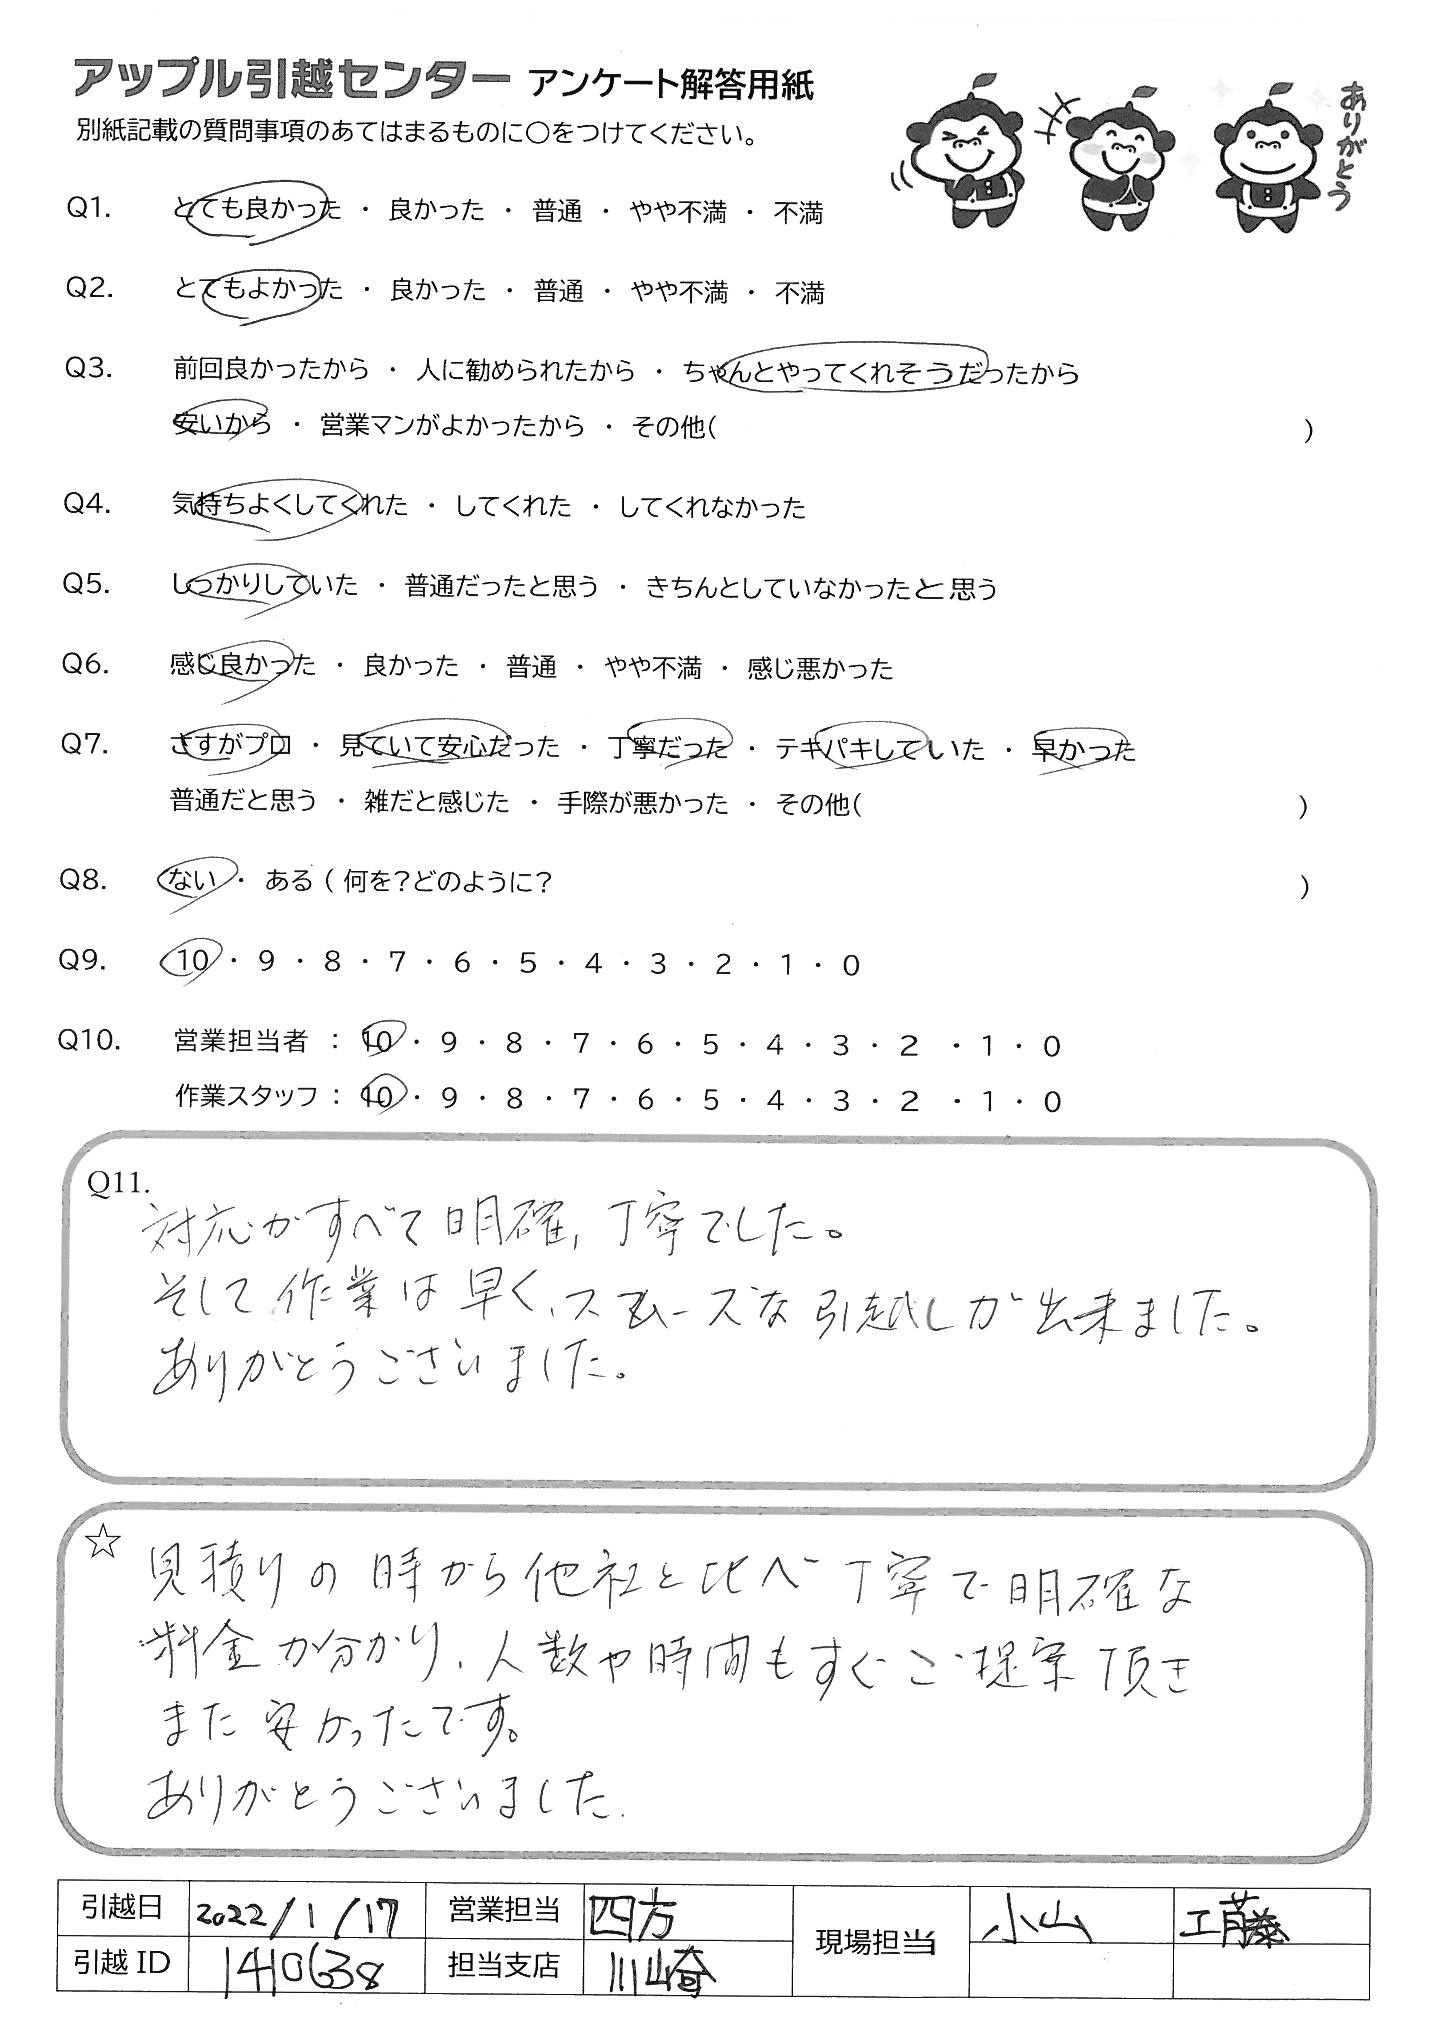 アップル引越センター アンケート解答用紙
別紙記載の質問事項のあてはまるものに○をつけてください。
ありがとう
Q1. とても良かった ・ 良かった ・ 普通 ・ やや不満 ・ 不満
Q2. とてもよかった ・ 良かった ・ 普通 ・ やや不満 ・ 不満
Q3. 前回良かったから ・ 人に勧められたから ・ ちゃんとやってくれそうだったから
安いから ・ 営業マンがよかったから ・ その他( )
Q4. 気持ちよくしてくれた ・ してくれた ・ してくれなかった
Q5. しっかりしていた ・ 普通だったと思う ・ きちんとしていなかったと思う
Q6. 感じ良かった ・ 良かった ・ 普通 ・ やや不満 ・ 感じ悪かった
Q7. さすがプロ ・ 見ていて安心だった ・ 丁寧だった ・ テキパキしていた ・ 早かった
普通だと思う ・ 雑だと感じた ・ 手際が悪かった ・ その他( )
Q8. ない ・ ある ( 何を?どのように? )
Q9. 10 ・ 9 ・ 8 ・ 7 ・ 6 ・ 5 ・ 4 ・ 3 ・ 2 ・ 1 ・ 0
Q10. 営業担当者 : 10 ・ 9 ・ 8 ・ 7 ・ 6 ・ 5 ・ 4 ・ 3 ・ 2 ・ 1 ・ 0
作業スタッフ : 10 ・ 9 ・ 8 ・ 7 ・ 6 ・ 5 ・ 4 ・ 3 ・ 2 ・ 1 ・ 0
Q11.
対応がすべて明確, 丁寧でした。
そして作業は早く、スムーズな引越しが出来ました。
ありがとうございました。
☆ 見積りの時から他社と比べ丁寧で明確な
料金が分かり、人数や時間もすぐご提案頂き
また安かったです。
ありがとうございました.
引越日 2022/1/17 営業担当 四方 現場担当 小山 工藤
引越ID 1410638 担当支店 川崎